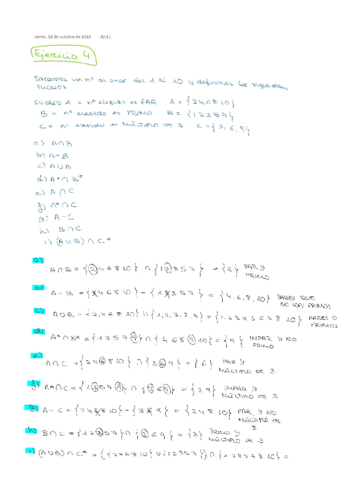 lunes, 28 de octubre de 2019 20:11
Ejercicio 4
Sacamos un nº al azar del 1 al 10 y definimos los siguientes
sucesos
Suceso A = nº elegido es PAR A = {2 4 6 8 10}
B = nº elegido es PRIMO B = {1 2 3 5 7}
C = nº elegido es MÚLTIPLO DE 3 C = {3, 6, 9}
a) A∩B
b) A-B
c) A∪B
d) A*∩B*
e) A∩C
f) A*∩C
g) A-C
h) B∩C
i) (A∪B)∩C*
a)
A∩B = {2 4 6 8 10} ∩ {1 2 3 5 7} = {2} PAR Y
PRIMO
b)
A-B = {2 4 6 8 10} - {1 2 3 5 7} = {4, 6, 8, 10} PARES QUE
NO SON PRIMOS
c)
A∪B = {2, 4, 6, 8, 10} ∪ {1, 2, 3, 5, 7} = {1 2 3 4 5 6 7 8 10} PARES O
PRIMOS
d)
A*∩B* = {1 3 5 7 9} ∩ {4 6 8 9 10} = {9} IMPAR Y NO
PRIMO
e)
A∩C = {2 4 6 8 10} ∩ {3 6 9} = {6} PAR Y
MÚLTIPLO DE 3
f)
A*∩C = {1 3 5 7 9} ∩ {3 6 9} = {3 9} IMPAR Y
MÚLTIPLO DE 3
g)
A-C = {2 4 6 8 10} - {3 6 9} = {2 4 8 10} PAR Y NO
MÚLTIPLO DE
3
h)
B∩C = {1 2 3 5 7} ∩ {3 6 9} = {3} PRIMO Y
MÚLTIPLO DE 3
i)
(A∪B)∩C* = ({2 4 6 8 10} ∪ {1 2 3 5 7}) ∩ {1 2 4 5 7 8 10} =